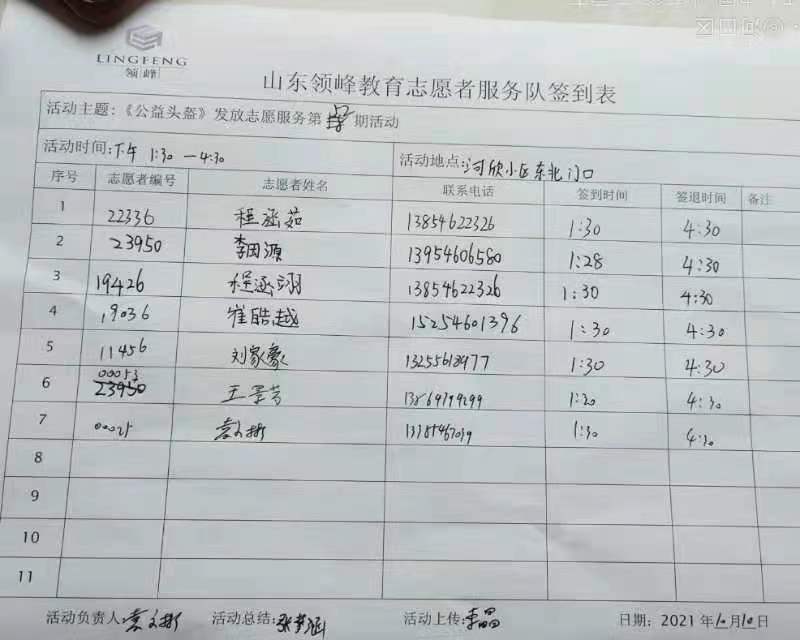 LINGFENG
领峰
山东领峰教育志愿者服务队签到表
活动主题:《公益头盔》发放志愿服务第 期活动
活动时间:下午 1:30 —4:30 活动地点:河欣小区东北门口
序号 志愿者编号 志愿者姓名 联系电话 签到时间 签退时间 备注
1 22336 程涵茹 13854622326 1:30 4:30
2 23950 李因源 13954606580 1:28 4:30
3 19426 程涵翊 13854622326 1:30 4:30
4 19036 崔皓越 15254601396 1:30 4:30
5 11456 刘家豪 1:30 4:30
6 00053 23950 王景芳 1:20 4:30
7 00025 袁文彬 1:30 4:30
8
9
10
11
活动负责人:袁文彬 活动总结:张梦涵 活动上传:李晶 日期: 2021 年10月10日